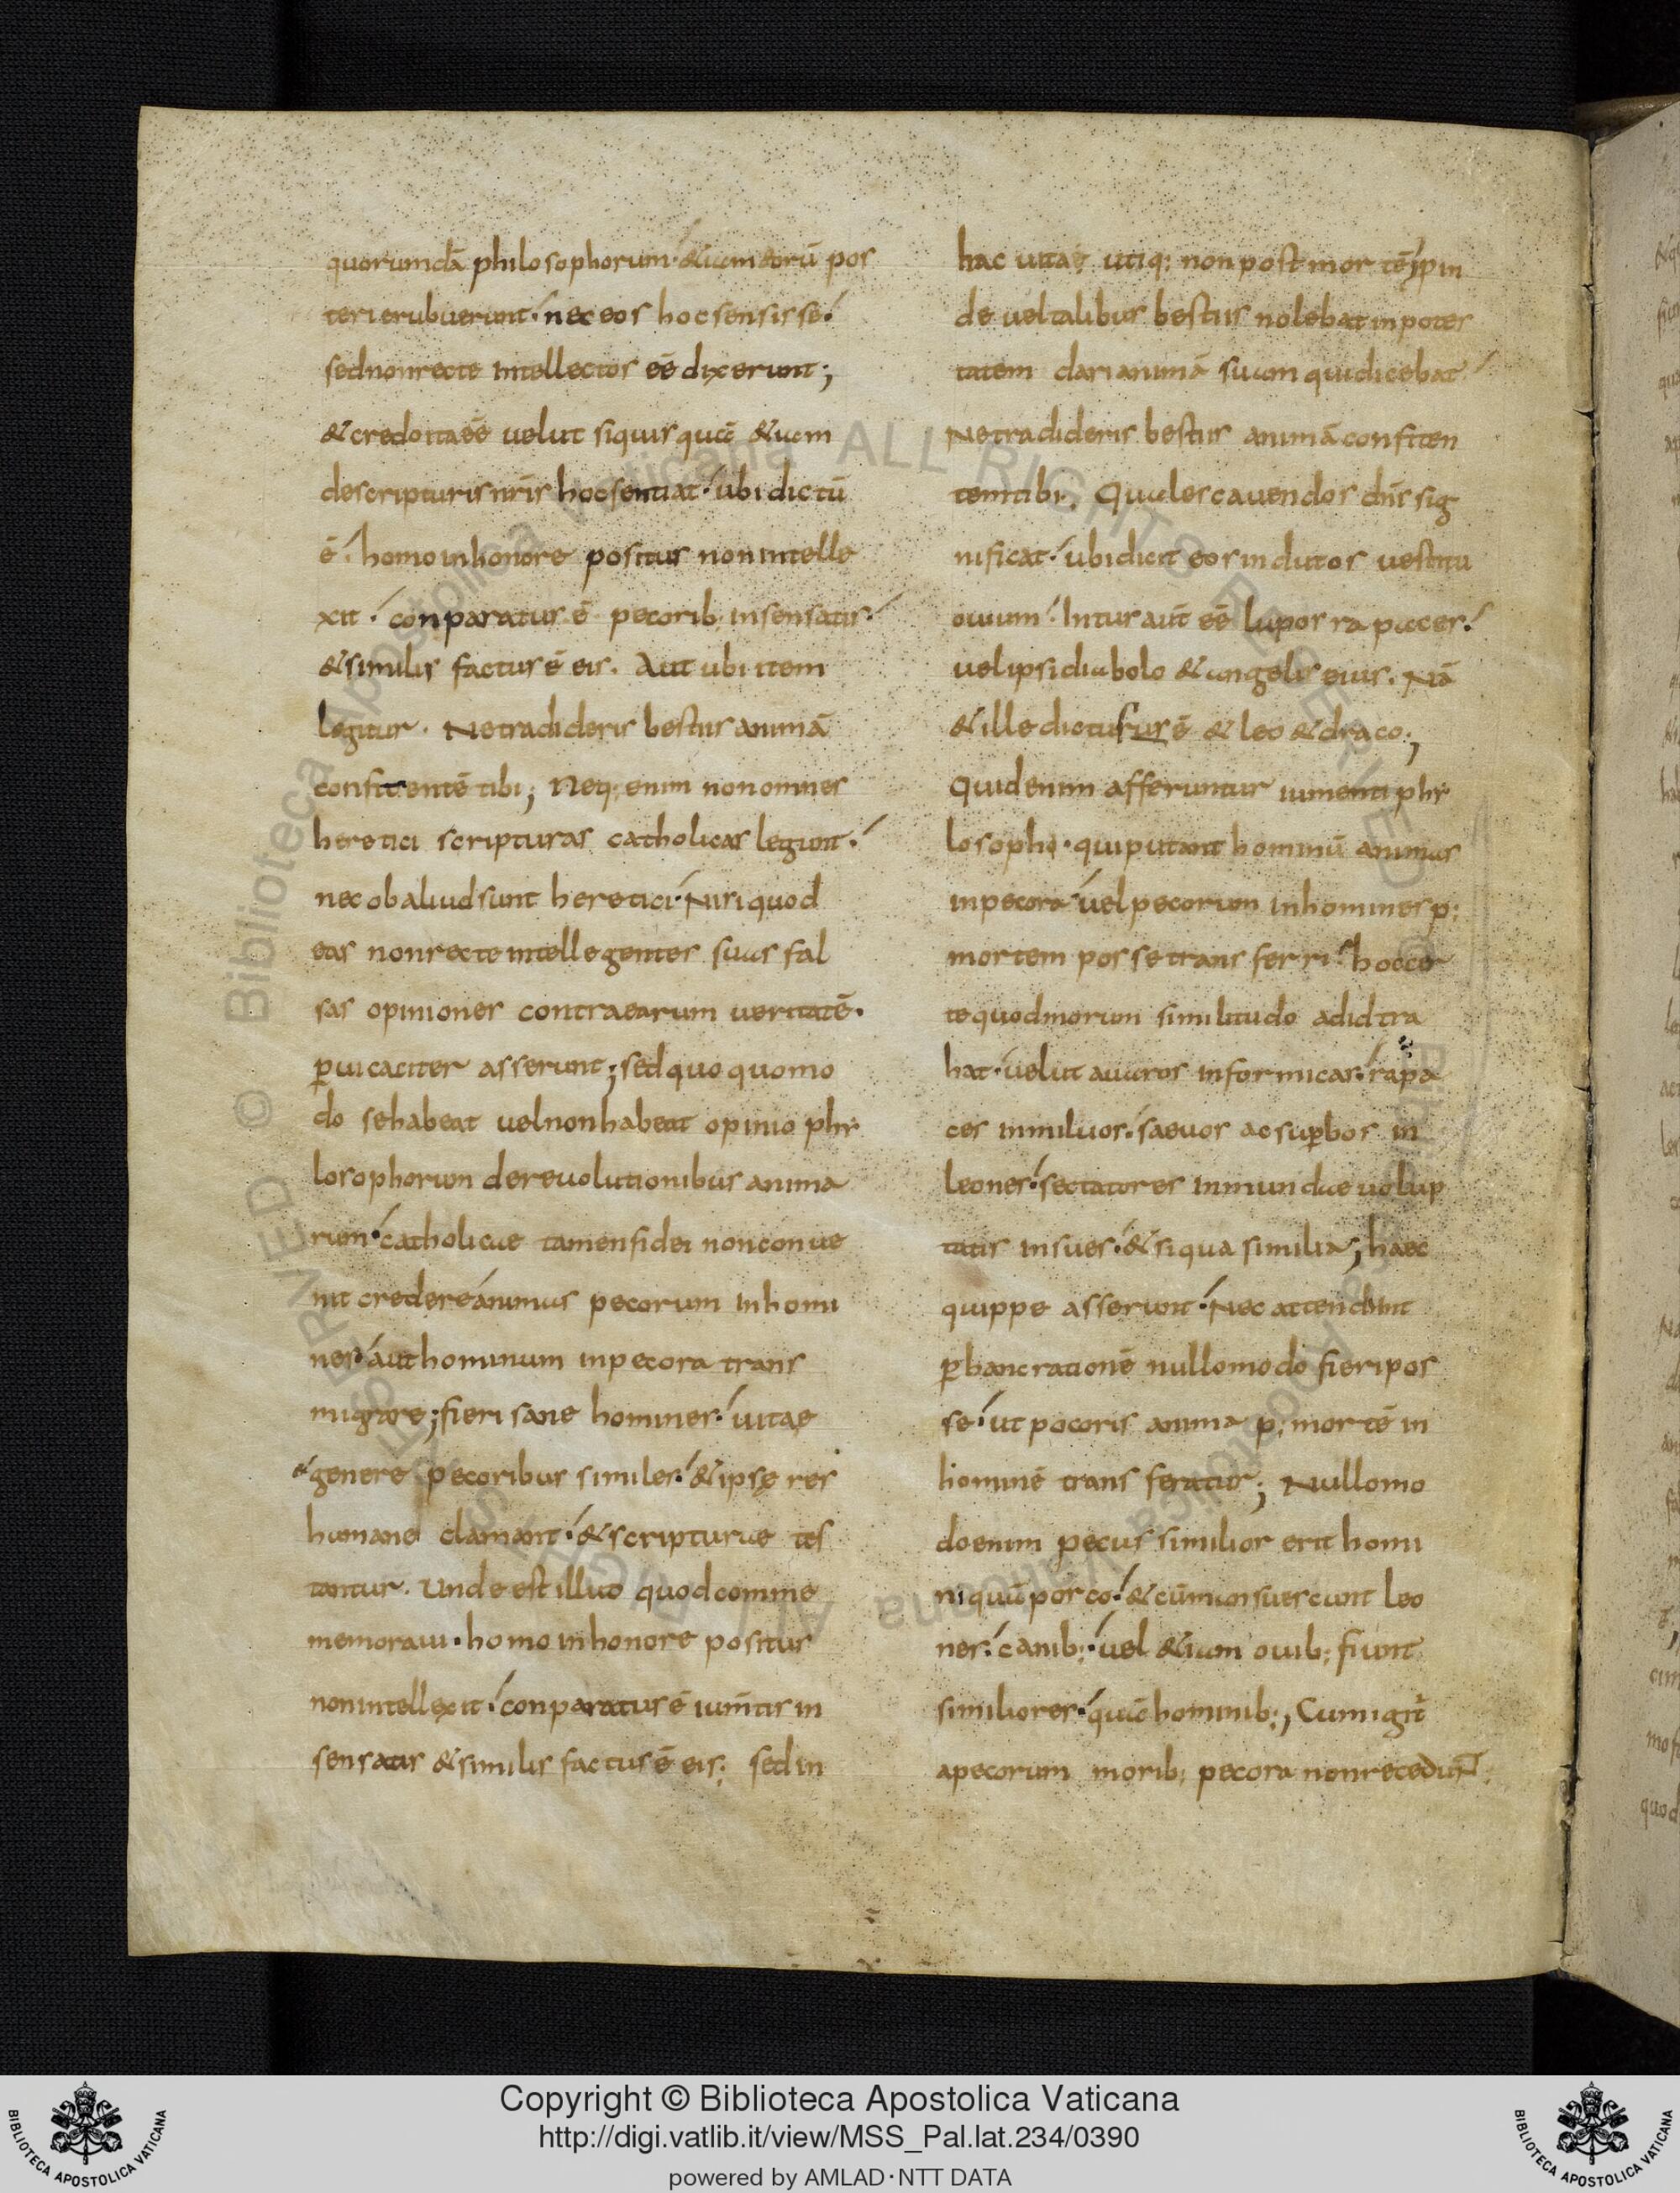 quorumdā philosophorum· & iam eorū pos
teri erubuerunt· nec eos hoc sensisse·
sed non recte intellectos eē dixerunt;
& credo ita eē velut siquis quaē & iam
de scripturis nr̄is hoc sentiat· ubi dictū
ē· homo in honore positus non intelle
xit· conparatus ē pecorib; insensatis·
& similis factus ē eis. Aut ubi item
legitur. Ne tradideris bestiis animā
confitentē tibi; Neq; enim non omnes
heretici scripturas catholicas legunt·
nec ob aliud sunt heretici· Nisi quod
eas non recte intellegentes suas fal
sas opiniones contra earum veritatē·
ꝑvicaciter asserunt; sed quoquomo
do se habeat vel non habeat opinio phi
losophorum de revolutionibus anima
rum· catholicae tamen fidei non conve
nit credere animas pecorum in homi
nes· aut hominum in pecora trans
migrare; fieri sane homines· vitae
& genere pecoribus similes· & ipsę res
humanę clamant· & scripturae tes
tantur. Unde est illud quod comme
memoravi· homo in honore positus
non intellexit· conparatus ē ium̄tis in
sensatis & similis factus ē eis; sed in
hac vita· utiq; non post mortē; ꝓin
de vel talibus bestiis nolebat in potes
tatem dari animā suam qui dicebat·
Ne tradideris bestiis animā confiten
tem tibi; Quales cavendos dn̄s sig
nificat· ubi dicit eos indutos vestitu
ovium· Intus aūt eē lupos rapaces·
vel ipsi diabolo & angelis eius. Nā
& ille dictus ē & leo & draco;
Quid enim afferuntur iumenti phi
losophi· qui putant hominū animas
in pecora· vel pecorum in homines p;
mortem posse transferri· hoc cer
te quod morum similitudo ad id tra
hat· velut avaros in formicas· rapa
ces in miluos· saevos ac suꝑbos in
leones· sectatores inmundae volup
tatis in sues· & siqua similia; haec
quippe asserunt· Nec attendunt
ꝑ hanc rationē nullo modo fieri pos
se· ut pecoris anima p; mortē in
hominē transferatur; Nullo mo
do enim pecus similior erit homi
ni quā porco· & cum mansuescunt leo
nes· canib;· vel &iam ovib; fiunt
similiores· quā hominib;; Cum igit̄
a pecorum morib; pecora non recedunt